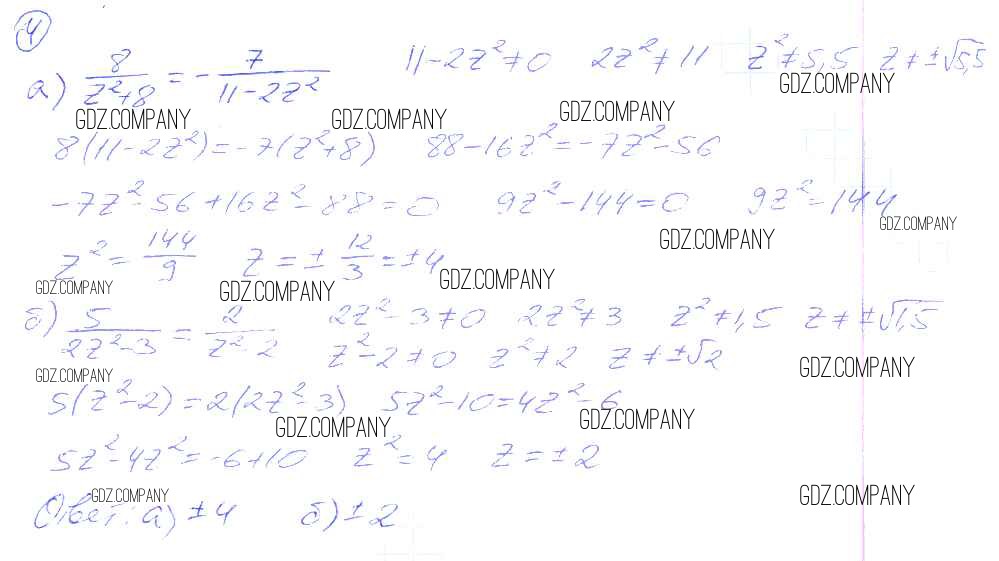 4
а) 8/(z²+8) = - 7/(11-2z²) 11-2z²≠0 2z²≠11 z²≠5,5 z≠±√5,5
GDZ.COMPANY GDZ.COMPANY GDZ.COMPANY GDZ.COMPANY
8(11-2z²)=-7(z²+8) 88-16z²=-7z²-56
-7z²-56+16z²-88=0 9z²-144=0 9z²=144
GDZ.COMPANY GDZ.COMPANY
z²=144/9 z=±12/3=±4
GDZ.COMPANY GDZ.COMPANY GDZ.COMPANY
б) 5/(2z²-3) = 2/(z²-2) 2z²-3≠0 2z²≠3 z²≠1,5 z≠±√1,5
z²-2≠0 z²≠2 z≠±√2
GDZ.COMPANY GDZ.COMPANY
5(z²-2)=2(2z²-3) 5z²-10=4z²-6
GDZ.COMPANY GDZ.COMPANY
5z²-4z²=-6+10 z²=4 z=±2
GDZ.COMPANY GDZ.COMPANY
Ответ: а) ±4 б) ±2